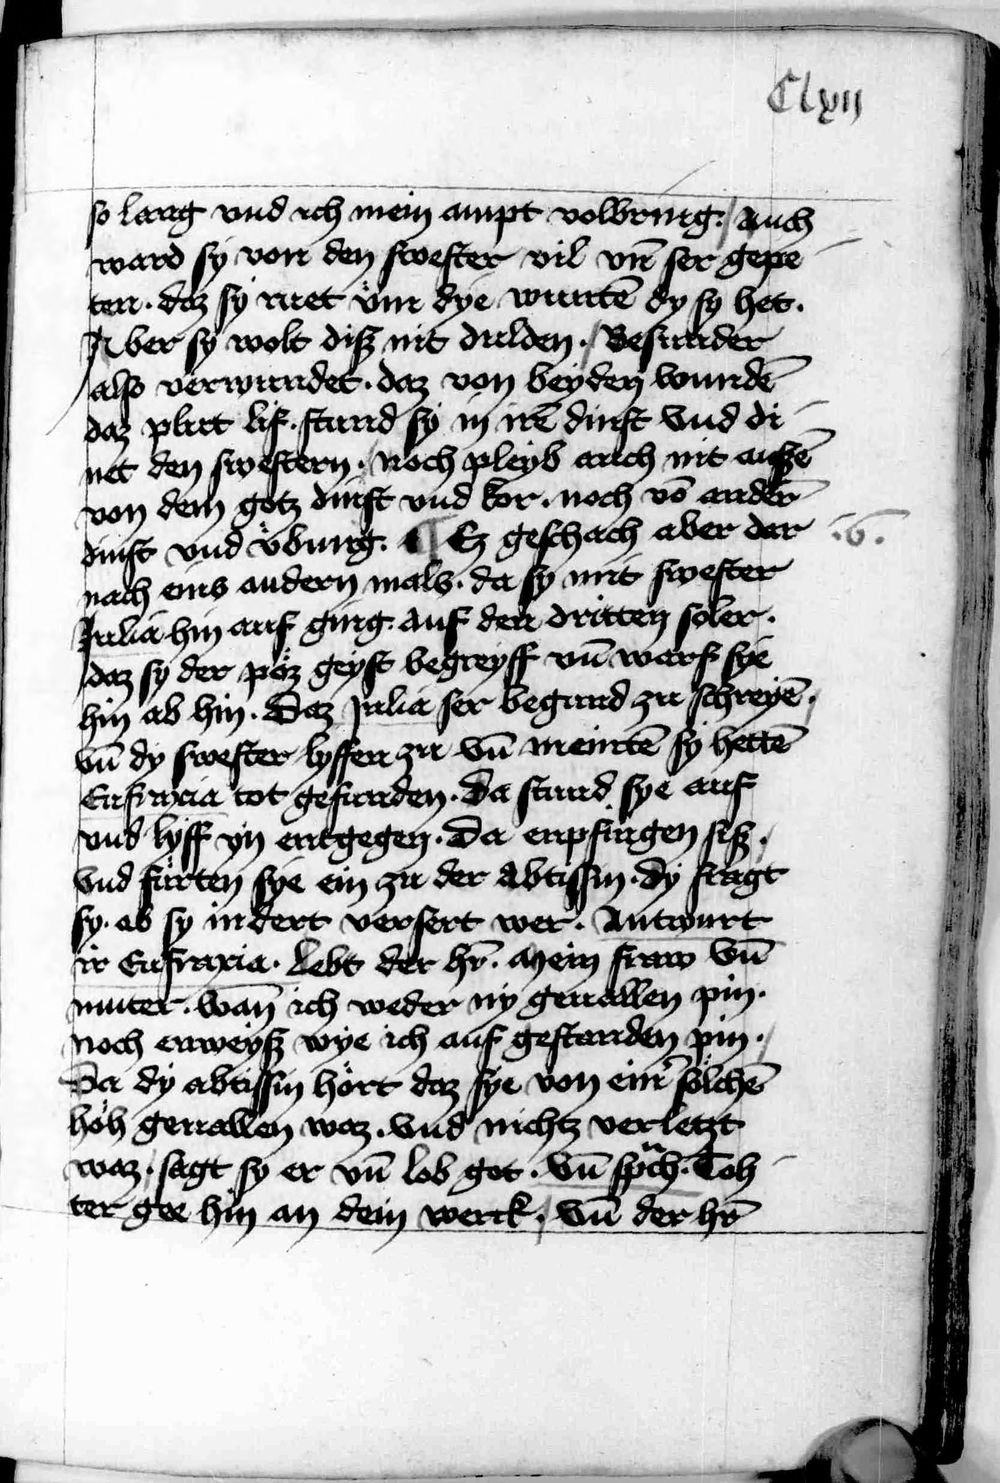 Clxii
so lang vnd ich mein ampt volbring. Auch
ward sy von den swester vil vn̄ ser gepe
ten. daz sy ruet üm dye wuntē dy sy het.
Aber sy wolt disz nit dulden. Besunder
also verwundet. daz von beyden wundē
daz plut lif. stund sy in irē dinst vnd di
net den swestern. noch pleyb auch nit auszē
von dem gotz dinst vnd kor. noch vō andern̄
dinst vnd übung. ¶ Ez geschach aber dar
.6.
nach eins andern mals. da sy mit swester
Julia hin auf ging auf den dritten soler.
daz sy der pöz geyst begreyff vn̄ warf sye
hin ab hin. Daz Julia ser begund zu schreyē.
vn̄ dy swester lyffen zu vn̄ meintē sy hettē
Eufraxia tot gefunden. Da stund sye auf
vnd lyff yn entgegen. Da enpfingen sisz.
vnd fürten sye ein zu der Abtissin. dy fragt
sy. ob sy indert versert wer. Antwurt
ir Eufraxia. Lebt der hr̄. Mein fraw vn̄
muter. wan̄ ich weder ny geuallen pin.
noch enweysz wye ich auf gestanden pin.
Da dy abtissin hört daz sye von einr̄ sölchē
höh geuallen waz. vnd nichtz verletzt
waz. sagt sy er vn̄ lob got. vn̄ sp͛ch. Toh
ter gee hin an dein werck. vn̄ der hr̄